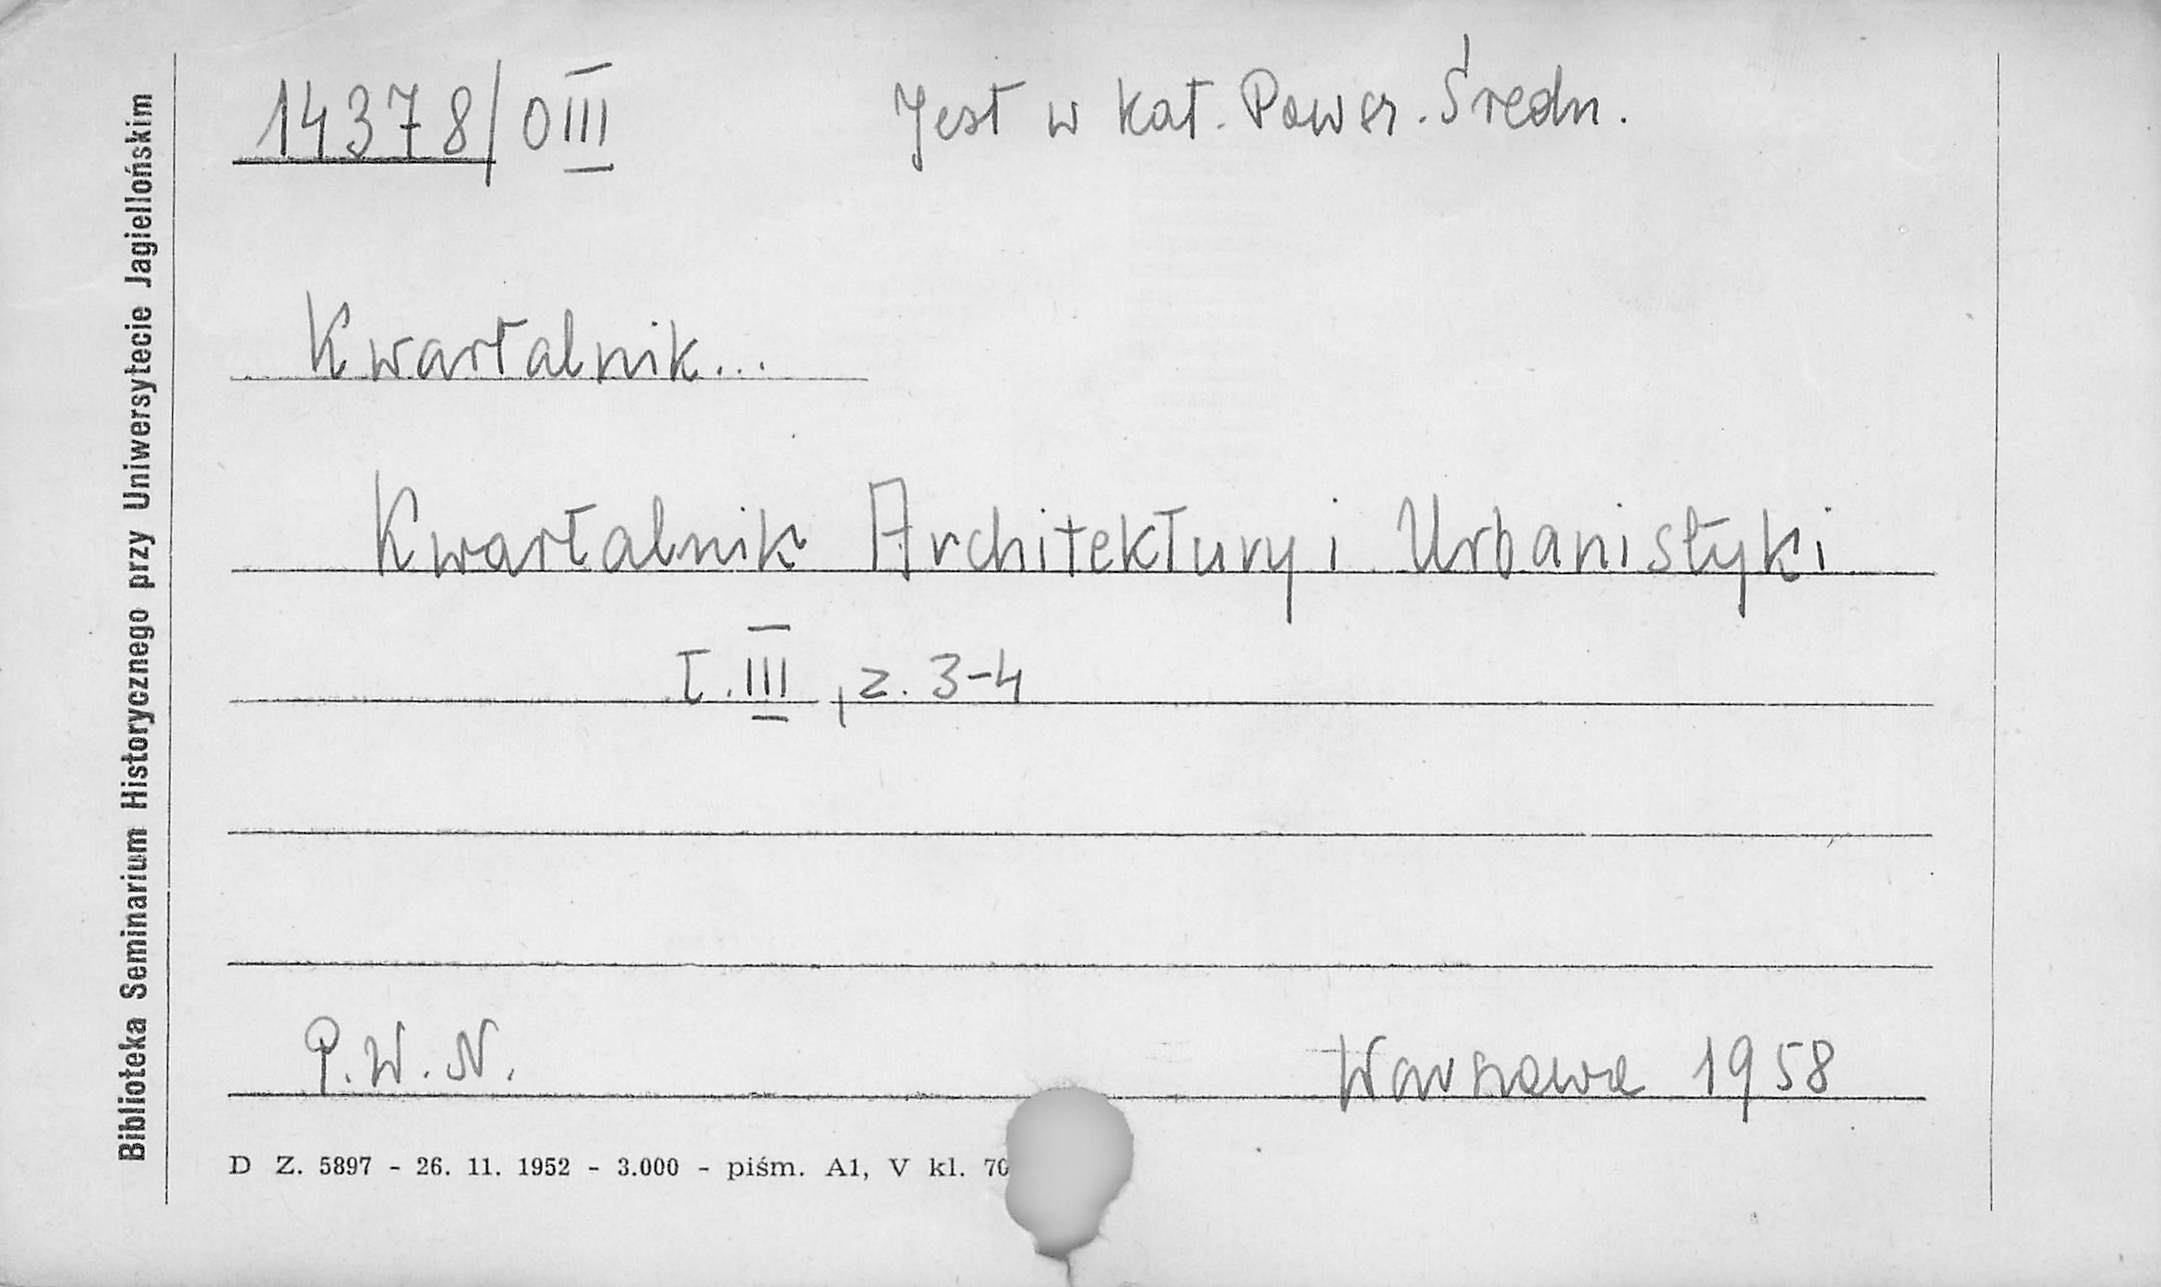 14378/0 III
Jest w kat. Powsz. Średn.
Kwartalnik...
Kwartalnik Architektury i Urbanistyki
T. III, z. 3-4
P.W.N.
Warszawa 1958
D Z. 5897 - 26. 11. 1952 - 3.000 - piśm. A1, V kl. 70
Biblioteka Seminarium Historycznego przy Uniwersytecie Jagiellońskim